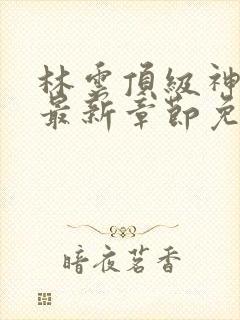 林雲頂級神
最新章節免
暗夜茗香